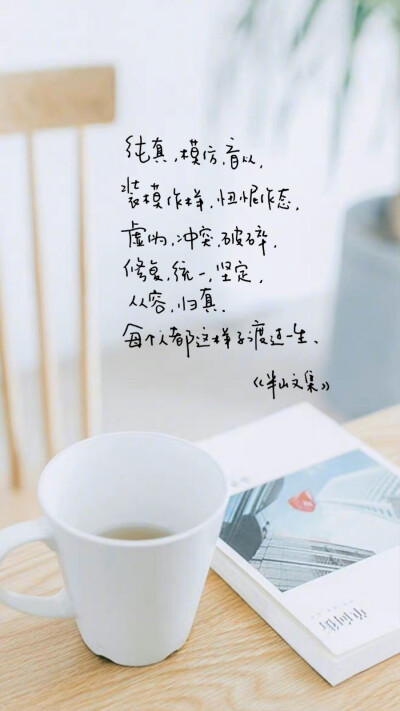 纯真,模仿,盲从,
装模作样,忸怩作态,
虚伪,冲突,破碎,
修复,统一,坚定,
从容,归真.
每个人都这样子渡过一生、
《半山文集》